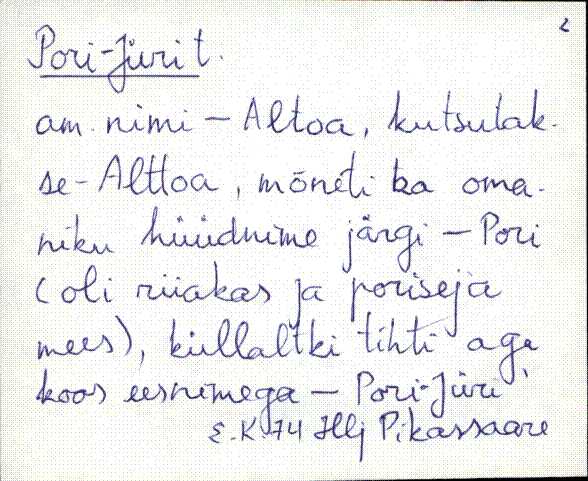 2
Pori-Jüri t.
am. nimi – Altoa, kutsutak-
se - Alttoa, mõneti ka oma-
niku hüüdnime järgi – Pori
(oli riiakas ja poriseja
mees), küllaltki tihti aga
koos eesnimega – Pori-Jüri
E.K. 74 Hlj Pikassaare